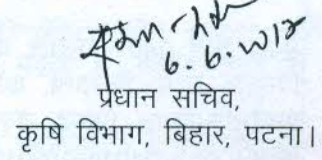 6.6.2012
प्रधान सचिव,
कृषि विभाग, बिहार, पटना।